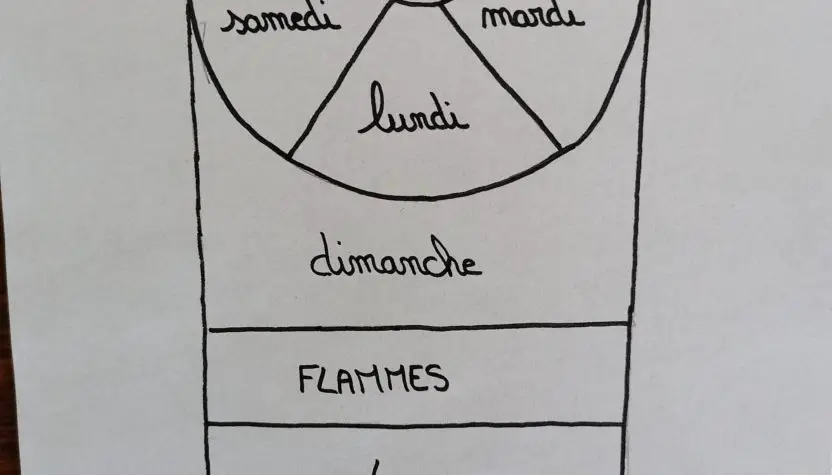 samedi mardi
lundi
dimanche
FLAMMES